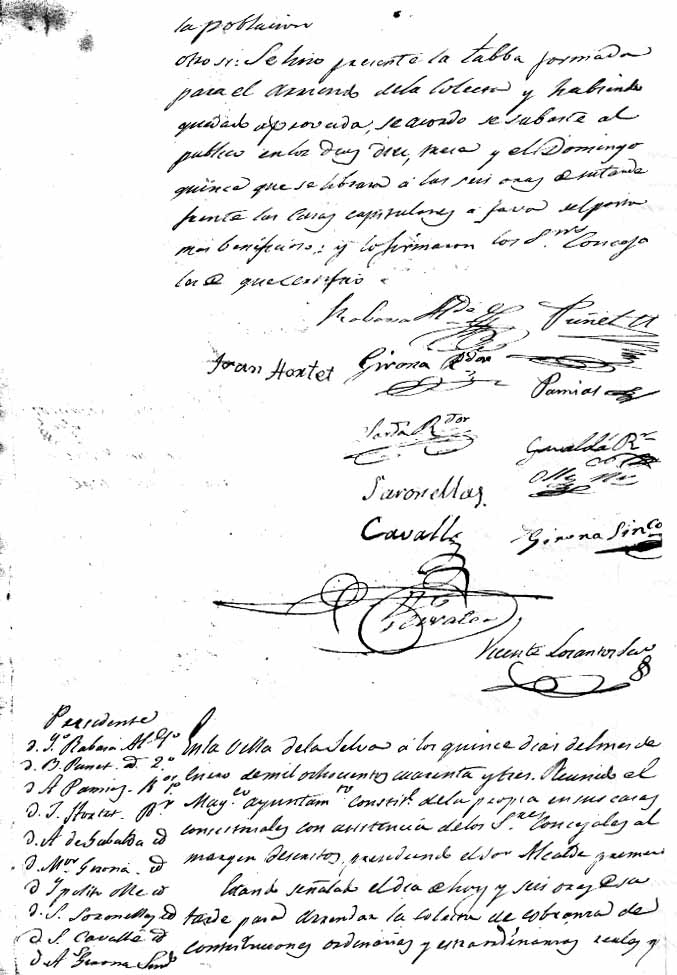 la poblacion
Otro si: Se hiso presente la tabba formada
para el arriendo de la Colecta y habiendo
quedado aprovada, se acordo se subaste al
publico en los dias diez, trece y el Domingo
quince que se librara á las seis oras de su tarde
frente las Casas capitulares á favor del postor
mas beneficioso; y lo firmaron los S.res Conceja
les de que certifico.
Rabasa Al.de
Puñet
Ivan Hortet Girona R.dor
Pamias
R.dor
Gavaldá R.r
Olle
Saronellas.
Cavallé
Girona Sin.co
Vicente Sec
Presidente
D. J. Rabasa Al. 1.º
D. B. Punet id. 2.º
D A Pamias R.or 1.º
D. J. Hortet R.r
D. A de Gabalda id
D. M.l Girona id
D Ipolito Olle id
D. S. Soronellas id
D. S. Cavallé id
D. A Girona Sind.
En la Villa de la Selva á los quince dias del mes de
Enero de mil ochocientos cuarenta y tres. Reunido el
Mag.co ayuntam.to constit.l de la propia en sus casas
consistoriales con asistencia de los S.res Concejales al
margen descritos, presidiendo el Sor Alcalde primero
Siendo señalado el dia de hoy y seis oras de su
tarde para arrendar la colecta de cobransa de
contribuciones ordinarias y extraordinarias reales y